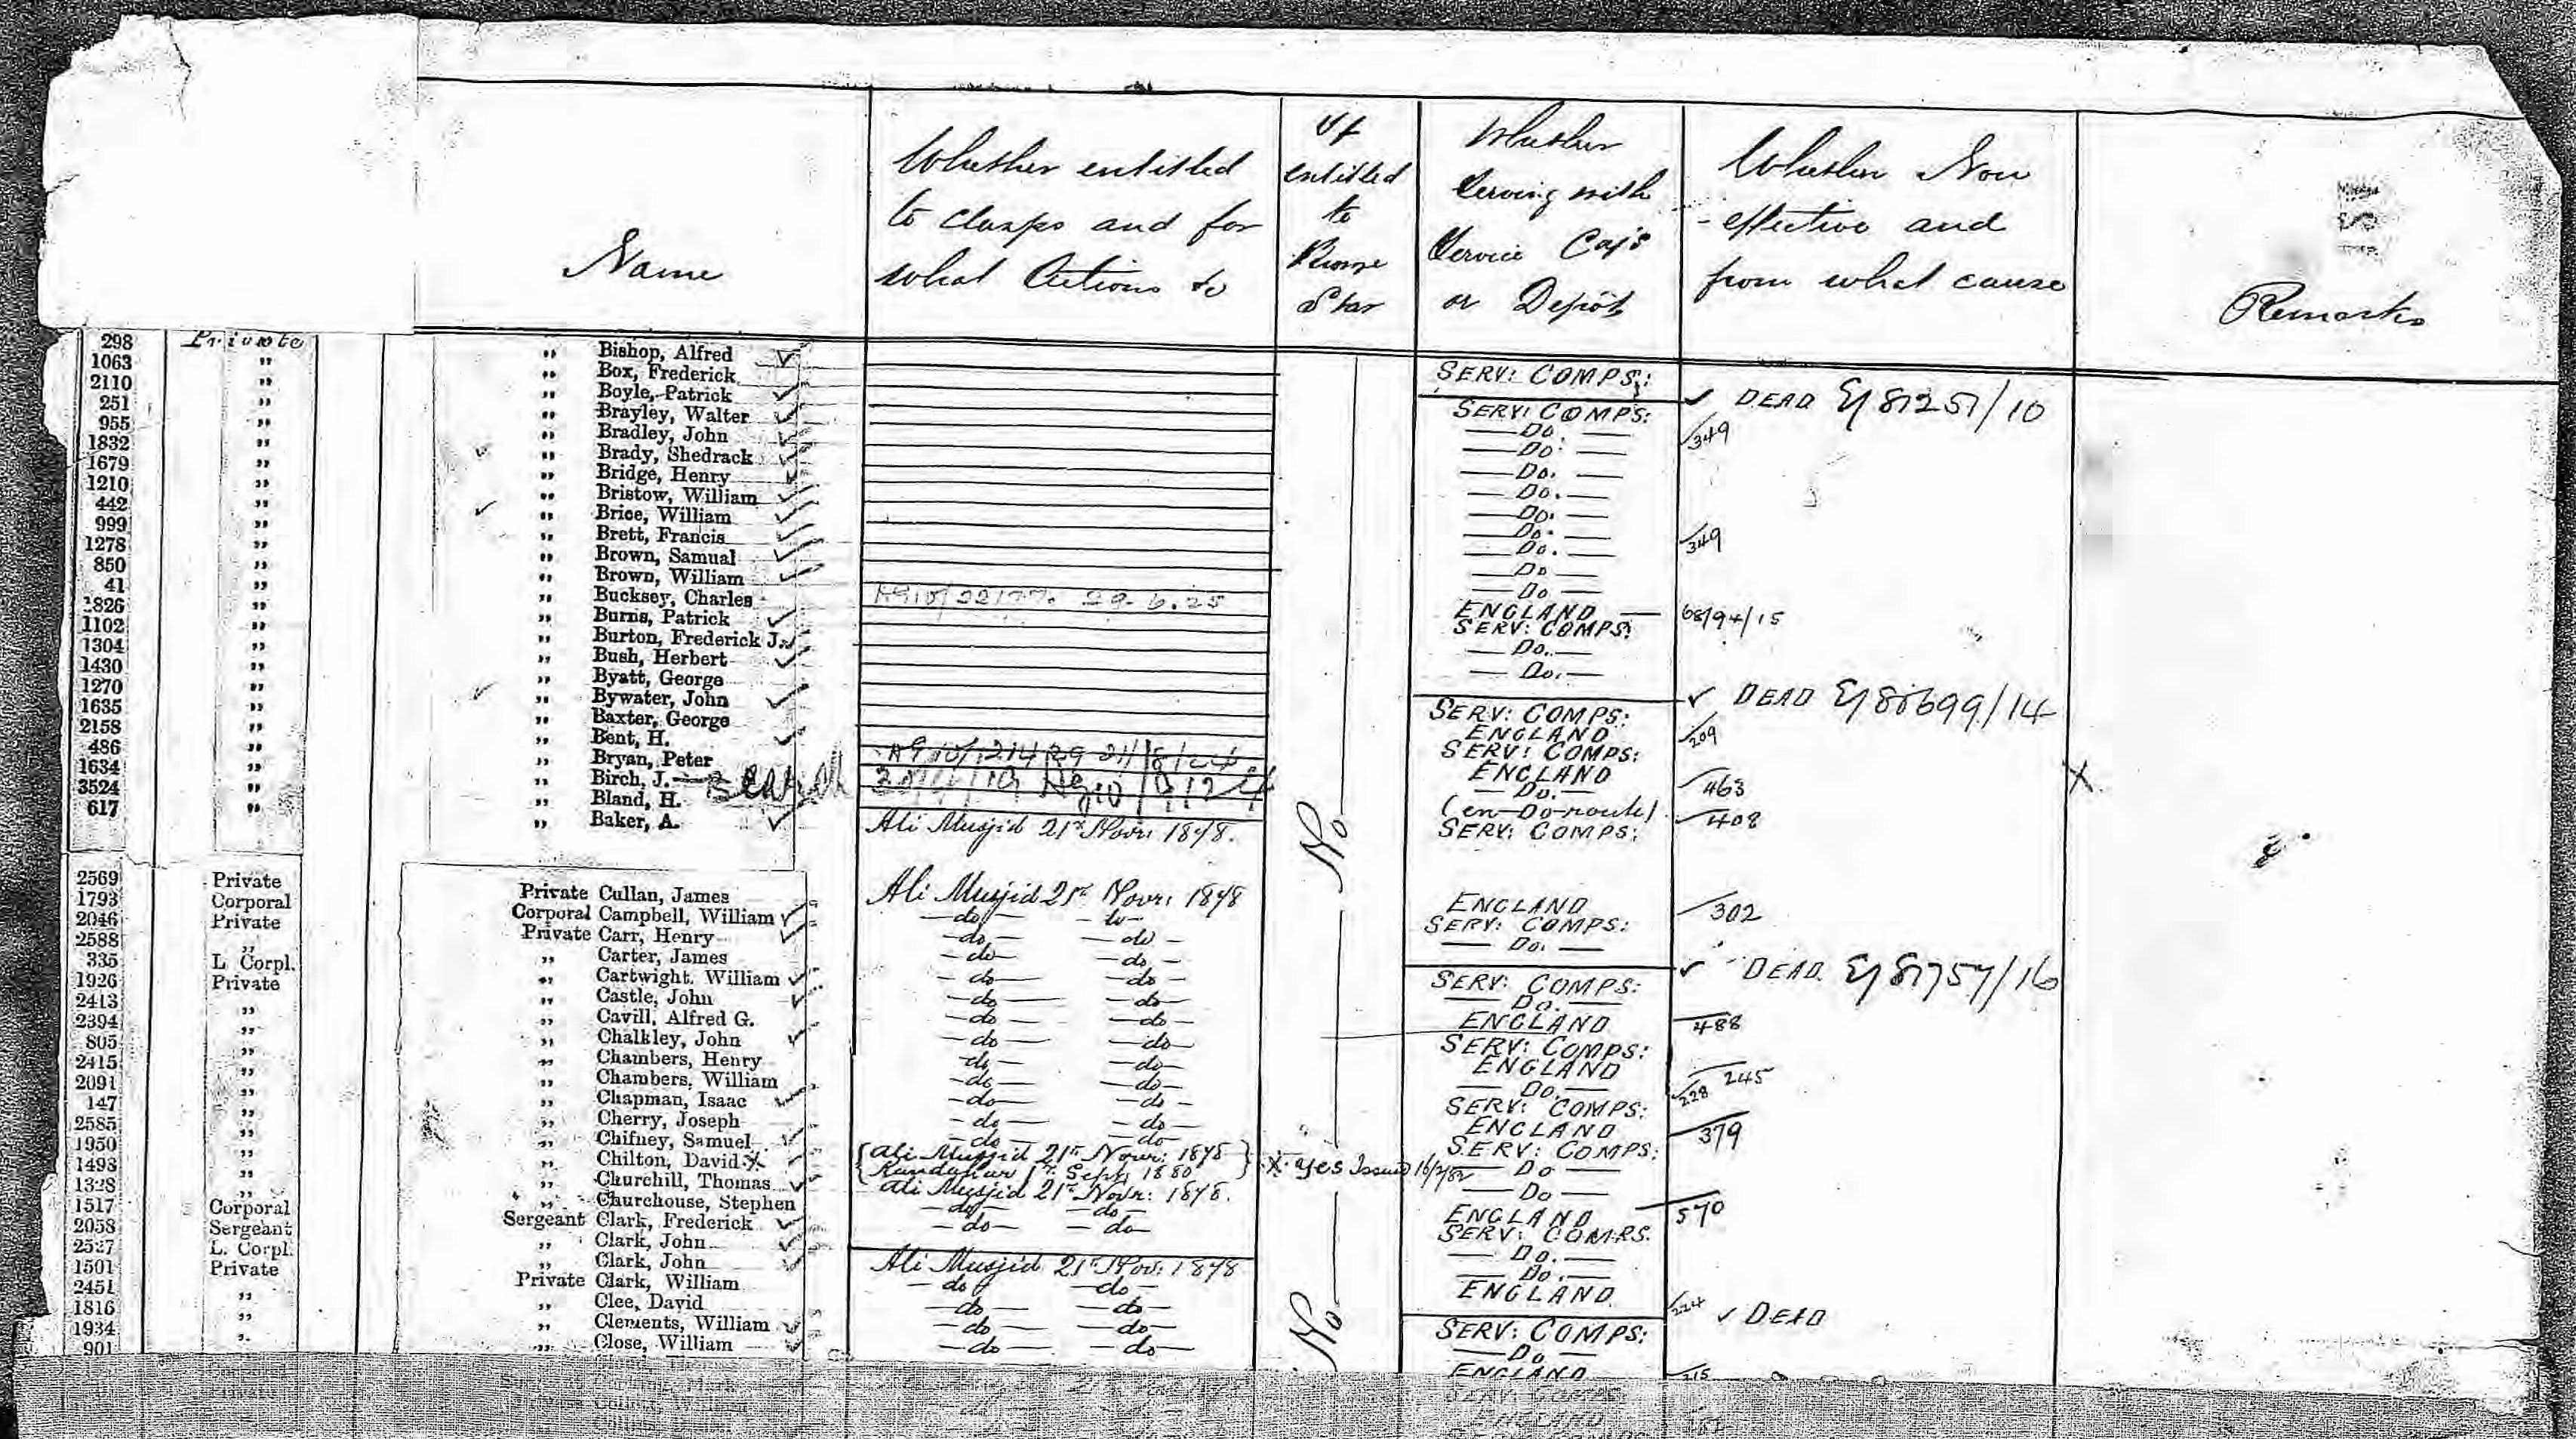 Name
Whether entitled
to clasps and for
what Actions to
If
entitled
to
Bronze
Star
Whether
Serving with
Service Coy's
or Depôt
Whether Non
-effective and
from what cause
Remarks
298 Private " Bishop, Alfred SERV: COMPS:
1063 " " Box, Frederick DEAD 81251/10
2110 " " Boyle, Patrick SERV: COMPS:
251 " " Brayley, Walter Do. 349
955 " " Bradley, John Do.
1832 " " Brady, Shedrack Do.
1679 " " Bridge, Henry Do.
1210 " " Bristow, William Do.
442 " " Brice, William Do.
999 " " Brett, Francis Do. 349
1278 " " Brown, Samual Do
850 " " Brown, William Do
41 " " Bucksey, Charles 29.6.25 ENGLAND 68/94/15
1826 " " Burns, Patrick SERV: COMPS:
1102 " " Burton, Frederick J. Do.
1304 " " Bush, Herbert Do.
1430 " " Byatt, George DEAD
1270 " " Bywater, John SERV: COMPS:
1635 " " Baxter, George ENGLAND 209
2158 " " Bent, H. SERV: COMPS:
486 " " Bryan, Peter ENGLAND
1634 " " Birch, J. Do. 463
3524 " " Bland, H. (en-Do-route) 408
617 " " Baker, A. Ali Musjid 21st Novr: 1878. No SERV: COMPS:
2569 Private Private Cullan, James Ali Musjid 21st Novr: 1878 ENGLAND 302
1793 Corporal Corporal Campbell, William do do SERV: COMPS:
2046 Private Private Carr, Henry do do Do.
2588 " " Carter, James do do DEAD 81757/16
335 L Corpl. " Cartwright. William do do SERV: COMPS:
1926 Private " Castle, John do do Do.
2413 " " Cavill, Alfred G. do do ENGLAND 488
2394 " " Chalkley, John do do SERV: COMPS:
805 " " Chambers, Henry do do ENGLAND 245
2415 " " Chambers, William do do Do. 228
2091 " " Chapman, Isaac do do SERV: COMPS:
147 " " Cherry, Joseph do do ENGLAND 379
2585 " " Chifney, Samuel do do SERV: COMPS:
1950 " " Chilton, David X {Ali Musjid 21st Novr: 1878
Kandahar 1st Sept 1880} X Yes Issued 16/2/82 Do
1493 " " Churchill, Thomas Ali Musjid 21st Novr: 1878. Do
1328 " " Churchouse, Stephen do do ENGLAND 570
1517 Corporal Sergeant Clark, Frederick do do SERV: COMPS.
2058 Sergeant " Clark, John Do.
2527 L. Corpl. " Clark, John Ali Musjid 21st Nov: 1878 Do.
1501 Private Private Clark, William do do ENGLAND 224
2451 " " Clee, David do do DEAD
1816 " " Clements, William do do No SERV: COMPS:
1934 " " Close, William do do Do
901 ENGLAND 215